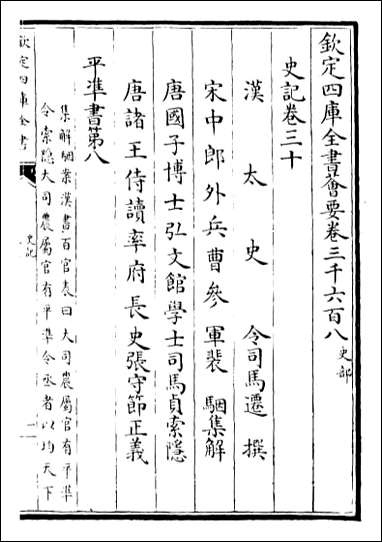 欽定四庫全書薈要卷三千六百八 史部
史記卷三十
漢太史令司馬遷撰
宋中郎外兵曹參軍裴駰集解
唐國子博士弘文館學士司馬貞索隱
唐諸王侍讀率府長史張守節正義
平準書第八
集解駰案漢書百官表曰大司農屬官有平準
令索隱大司農屬官有平準令丞者以均天下
欽定四庫全書
史記
一